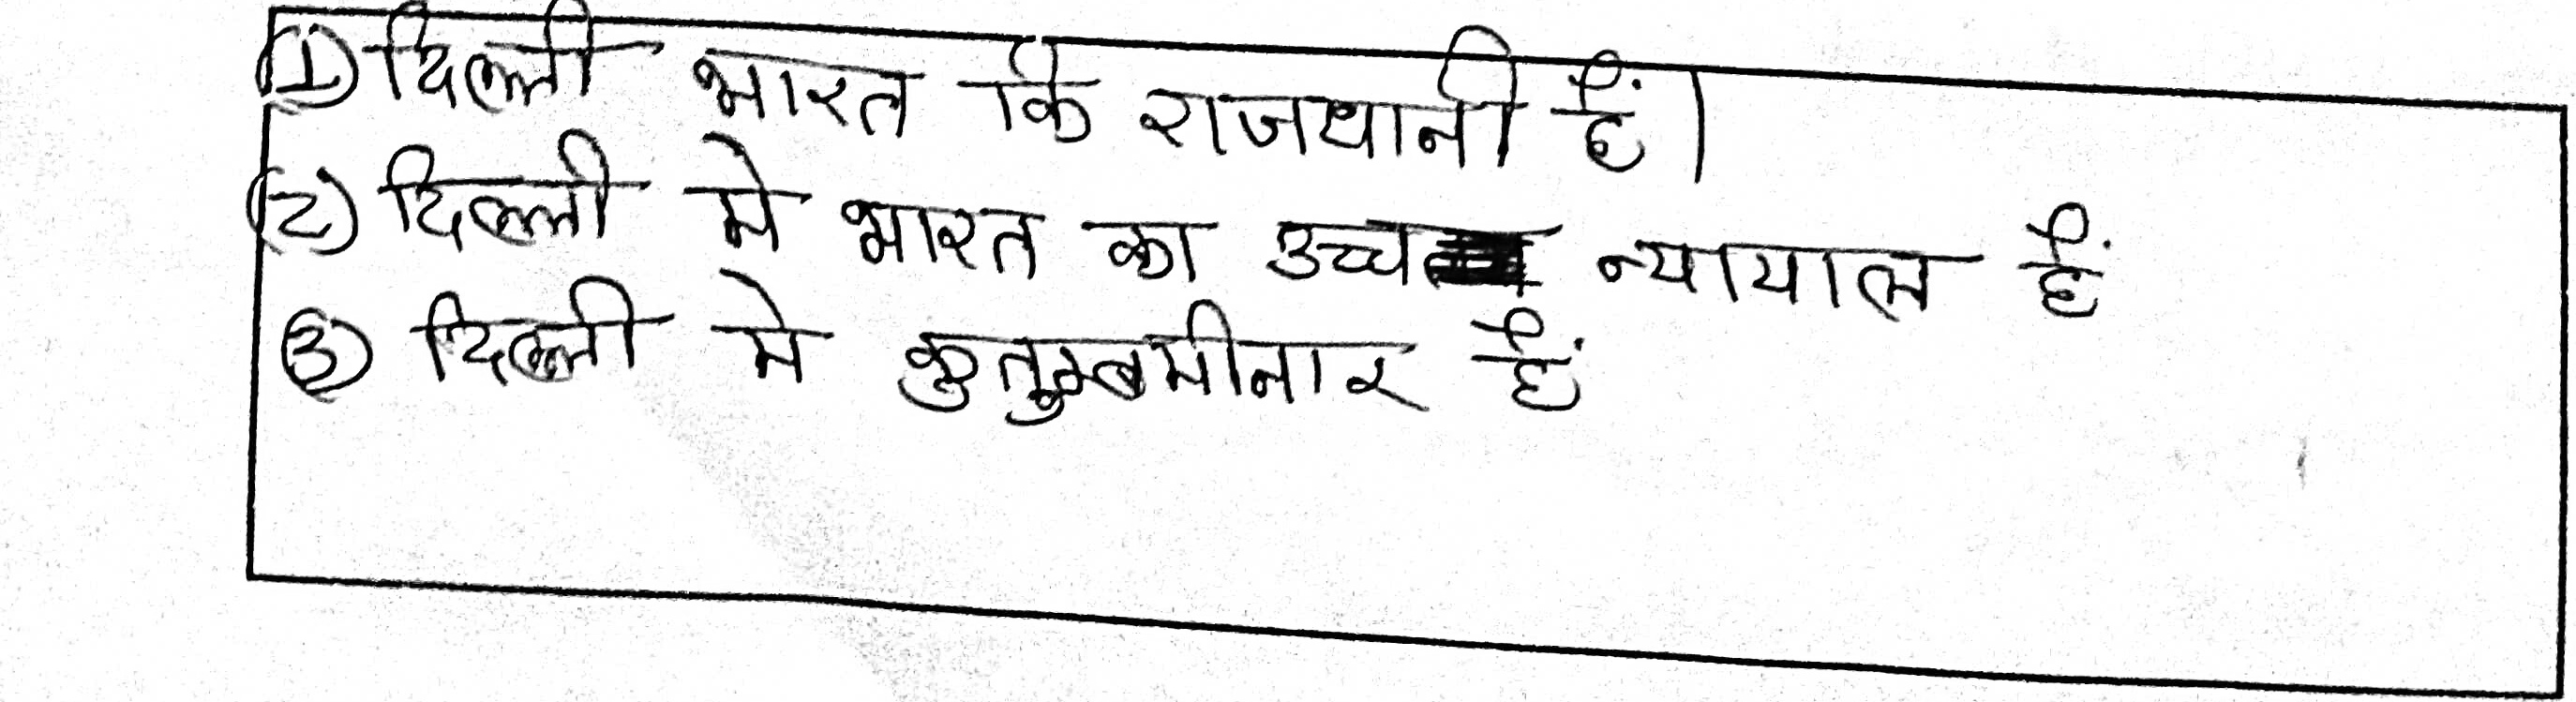 (1) दिल्ली भारत कि राजधानी हैं।
(2) दिल्ली मे भारत का उच्च न्यायाल हैं
(3) दिल्ली मे कुतुम्बमीनार हैं